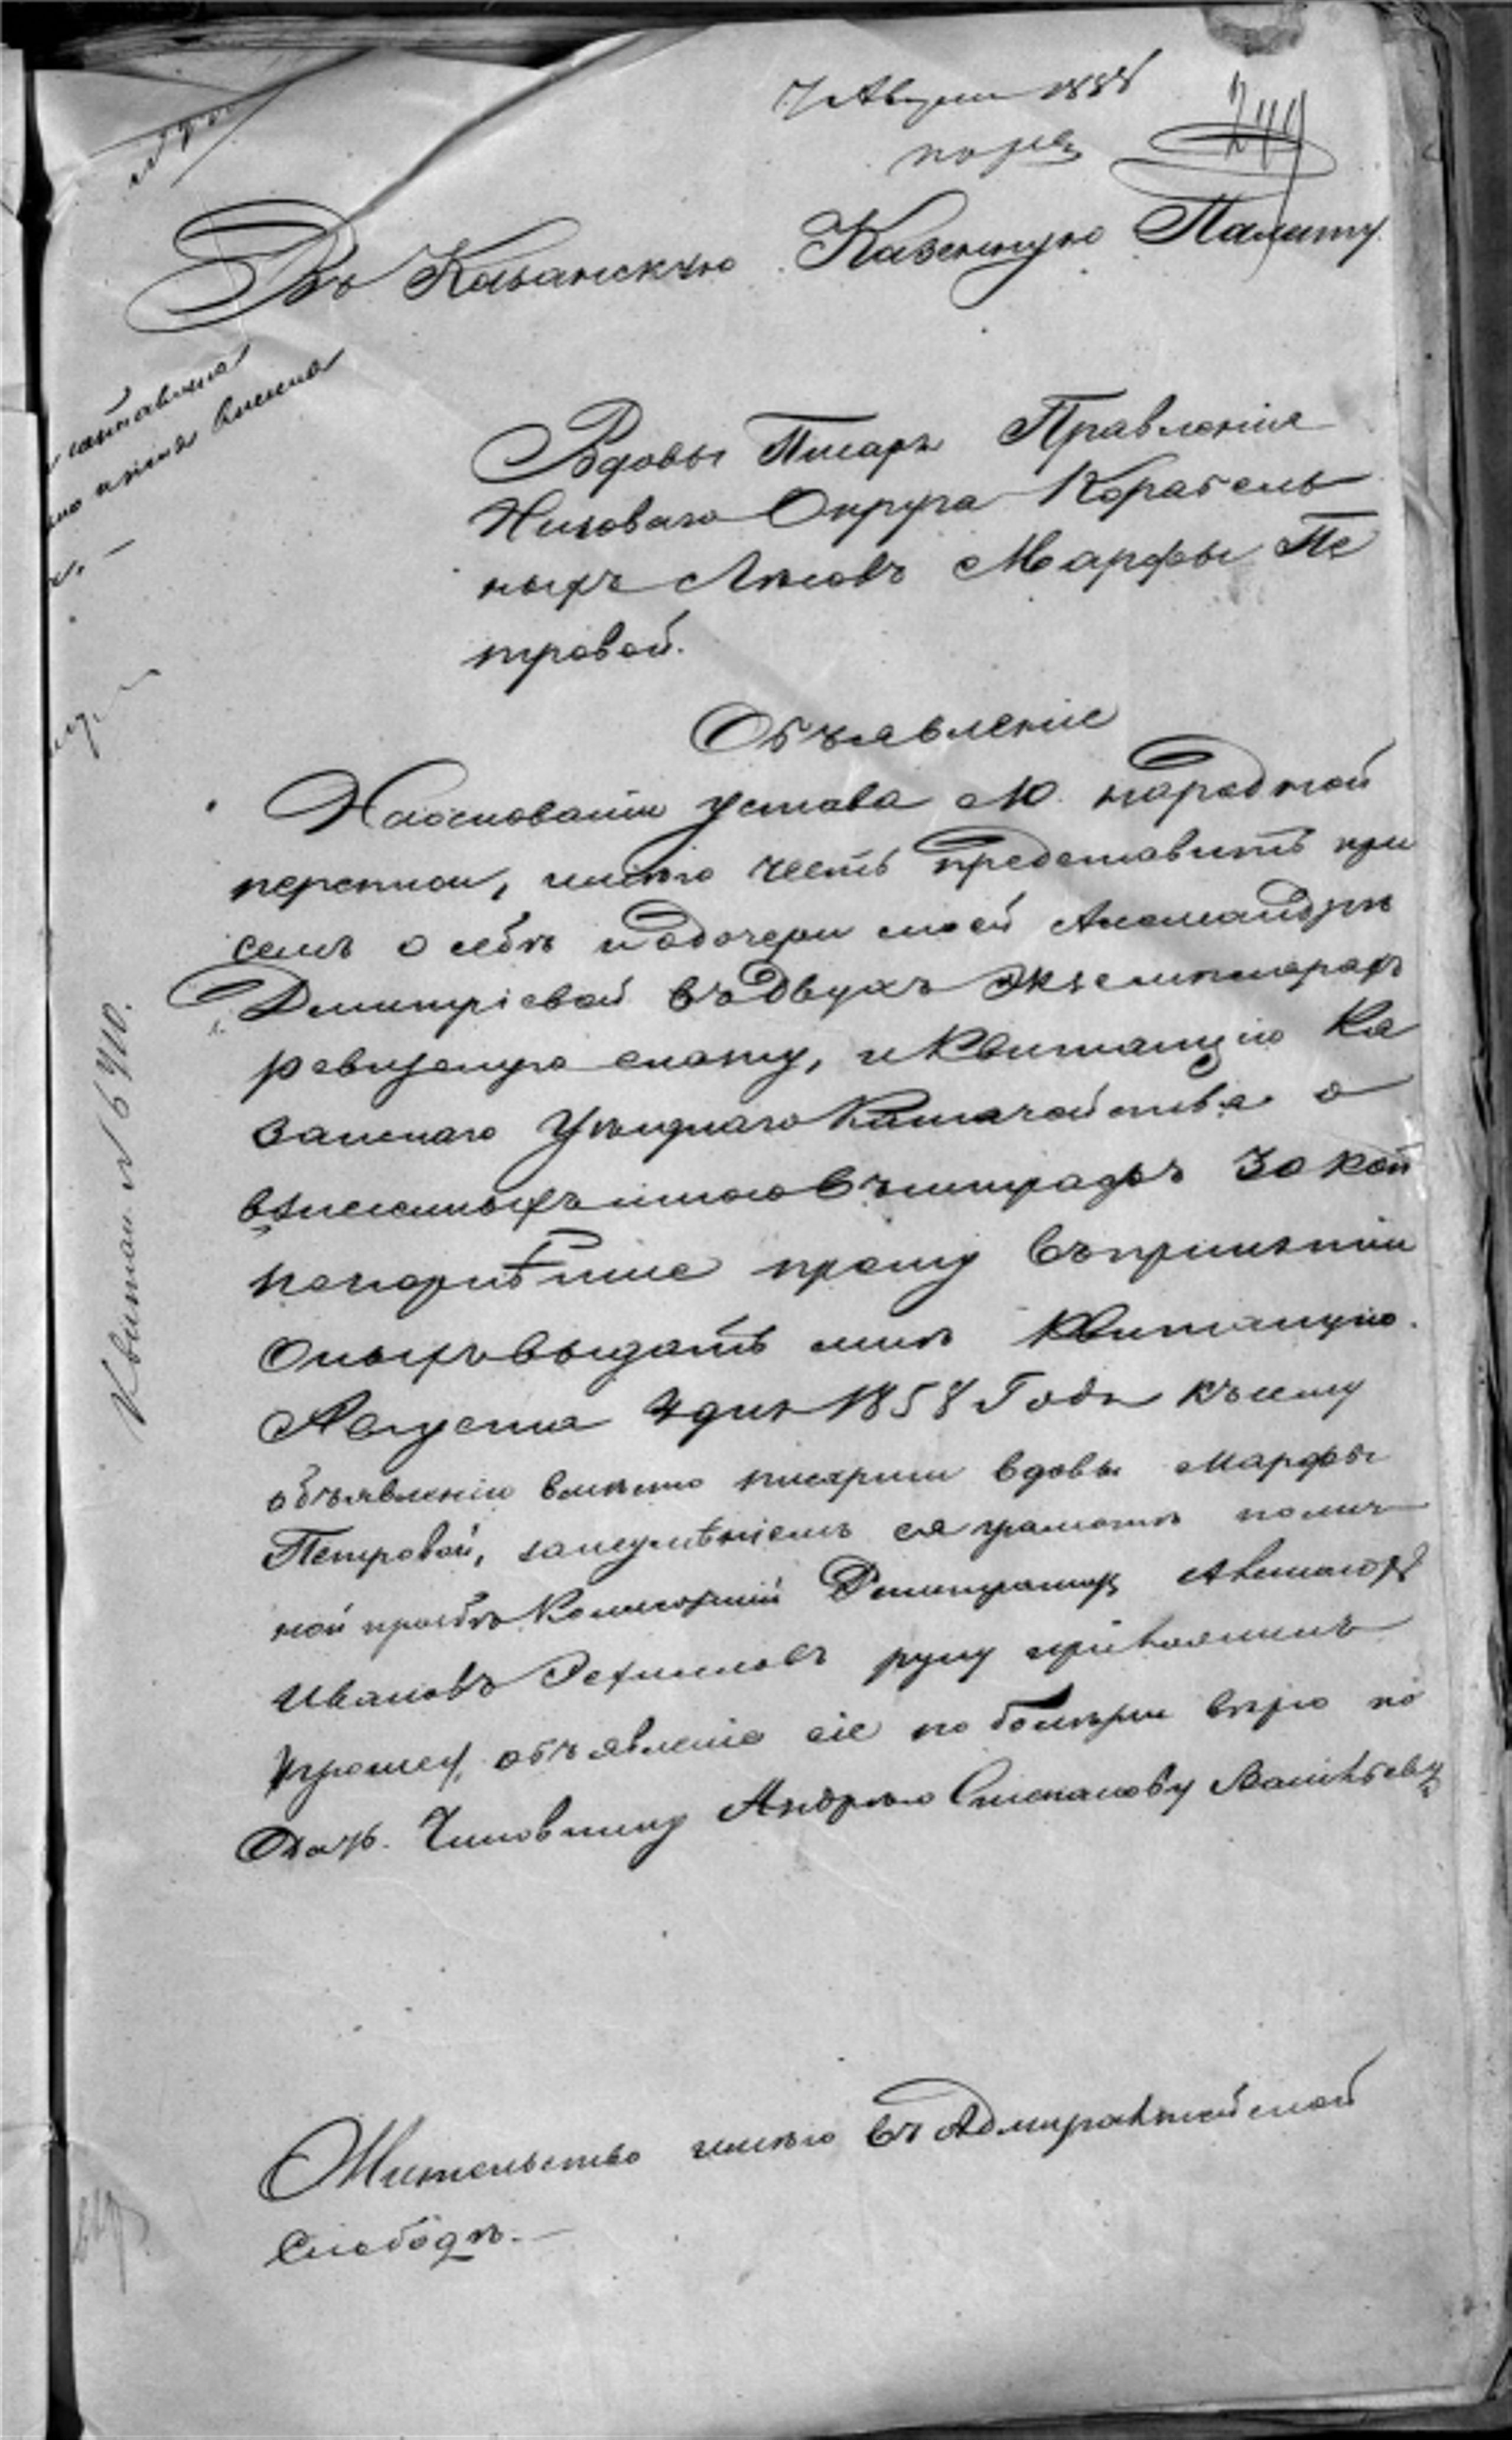 7 Августа 1858
249
Въ Казанскую Казенную Палату
Вдовы Писаря Правленія
Низоваго Округа Корабель
ныхъ Лѣсовъ Марфы Пе
тровой.
Объявленіе
На основаніи устава 10. народной
переписи, имѣю честь представить при
семъ о себѣ и о дочери моей Александрѣ
Дмитріевой въ двухъ экземплярахъ
ревизскую скаску, и квитанцію Ка
занскаго Уѣзднаго Казначейства о
взнесенныхъ мною въ штрафъ 30 коп
покорнѣйше прошу въ принятіи
оныхъ выдать мнѣ квитанцію.
Августа 4 дня 1858 Года къ сему
объявленію вмѣсто писарши вдовы Марфы
Петровой, за неумѣніемъ ея грамотѣ по лич
ной прозьбѣ Колежскій Регистраторъ
Ивановъ руку приложилъ
объявленіе сіе по болѣзни вѣрю по
дать Чиновнику Андрею Степанову
Жительство имѣю въ Адмиралтейской
Слободѣ.
Квитан. № 6410.